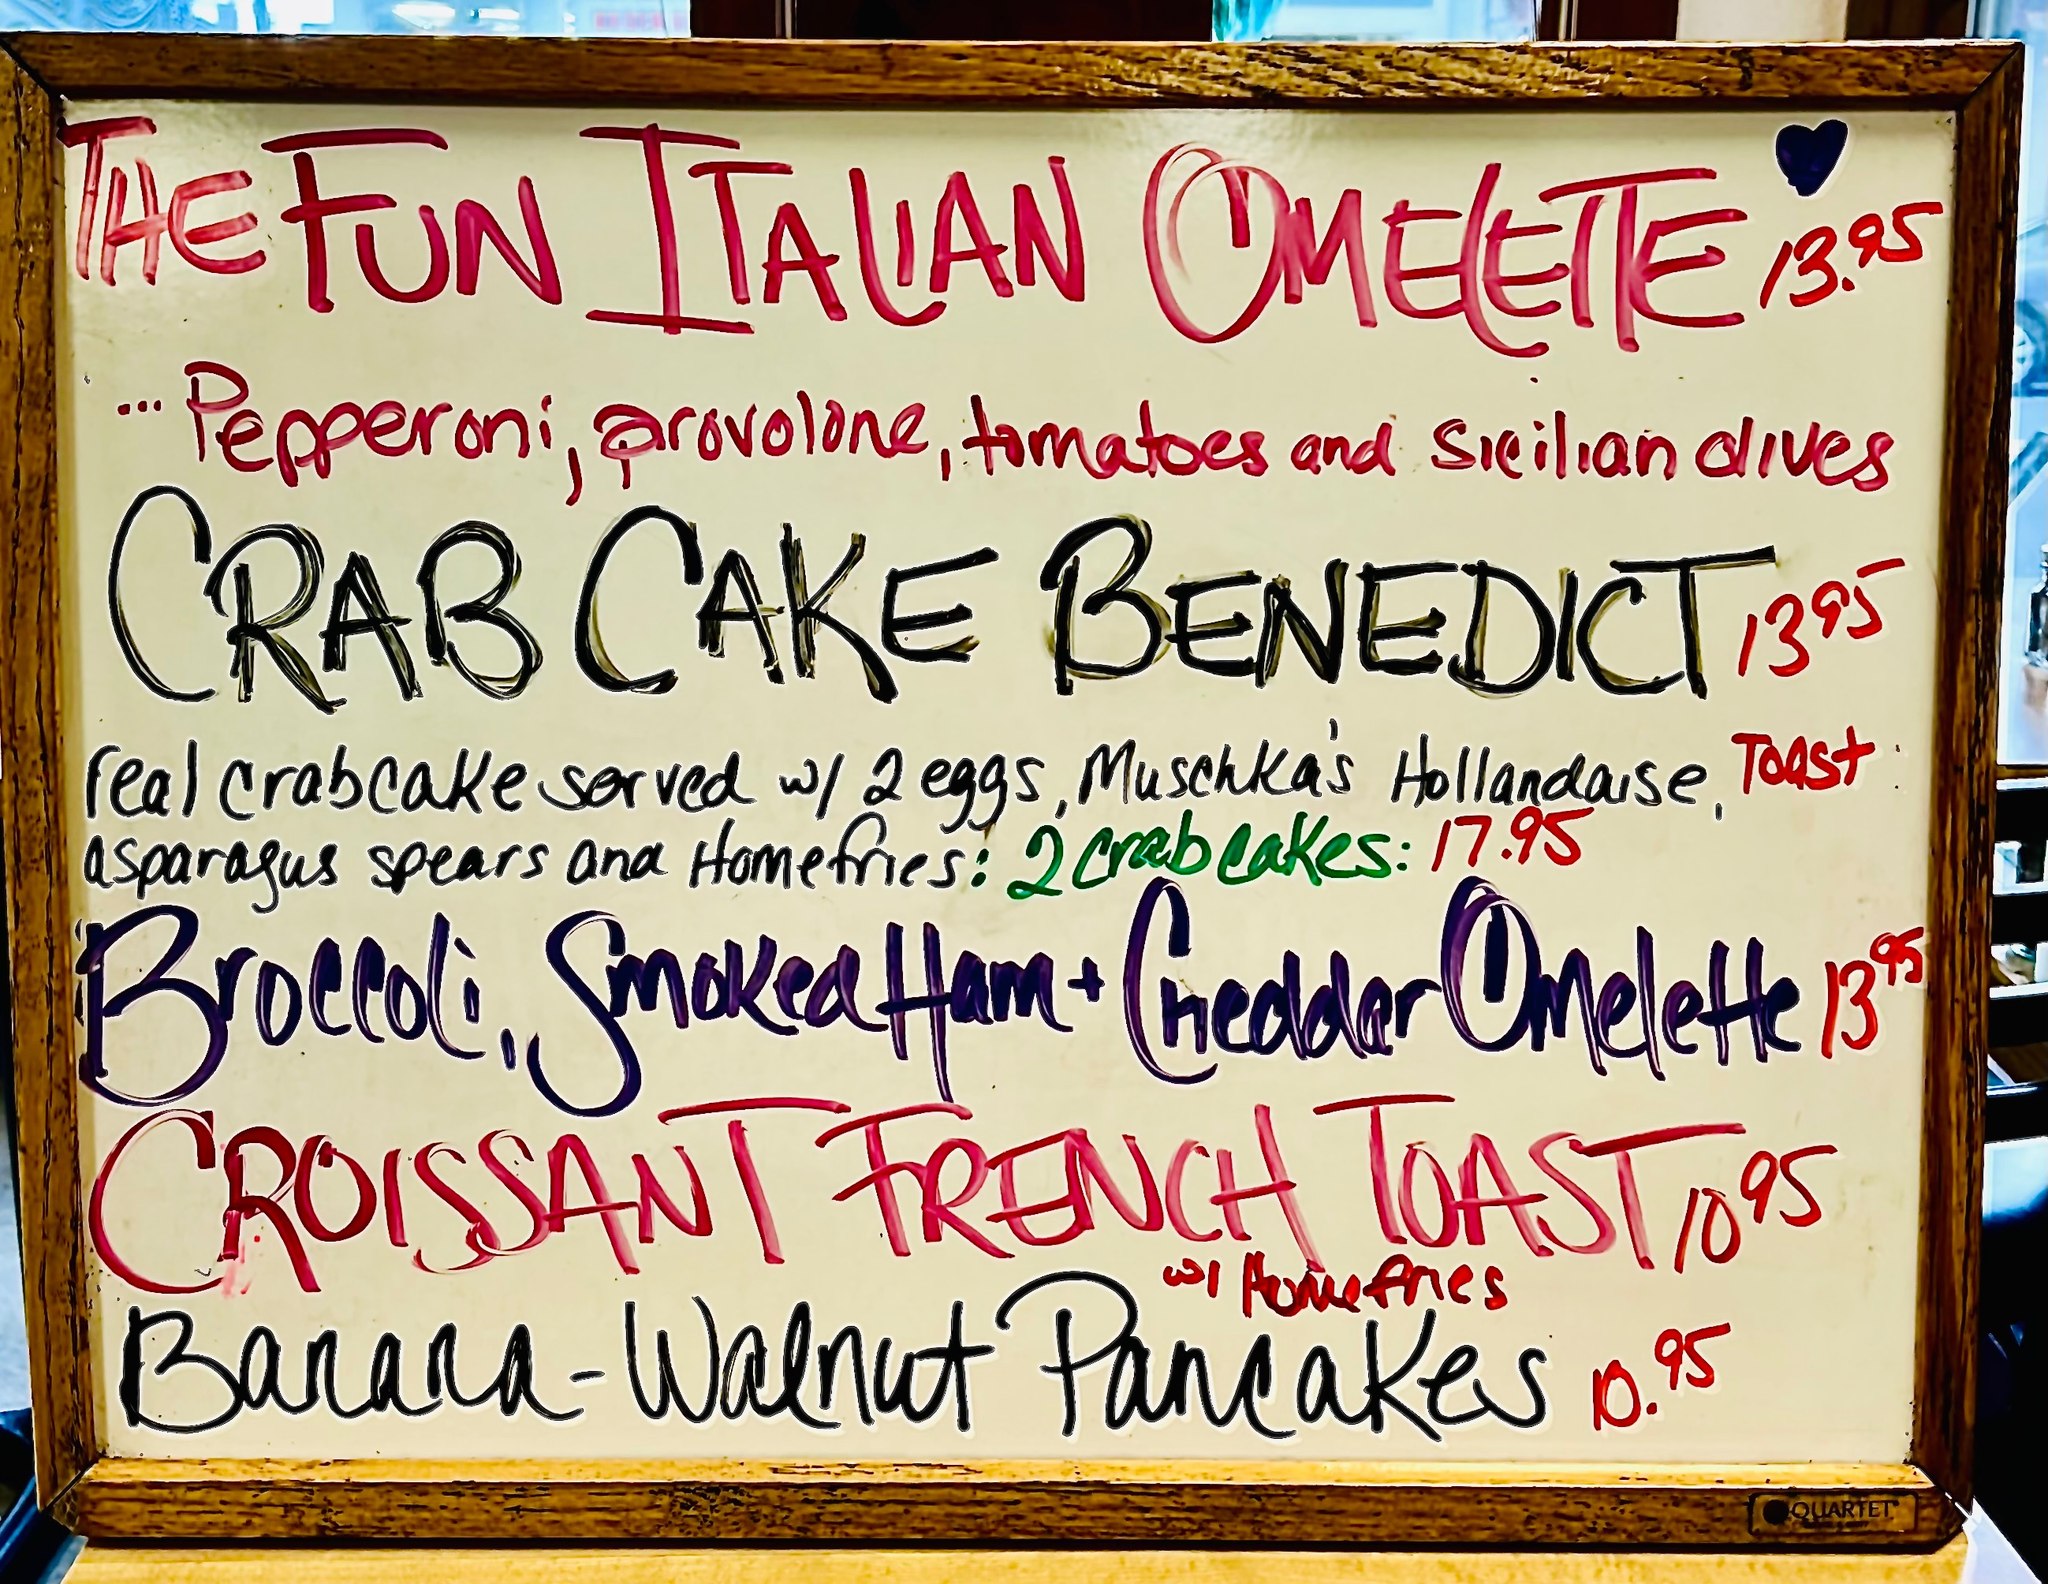 THE FUN ITALIAN OMELETTE 13.95
...Pepperoni, provolone, tomatoes and Sicilian olives
CRAB CAKE BENEDICT 13 95
real crabcake served w/ 2 eggs, Muschka's Hollandaise, Toast
asparagus spears and Homefries: 2 crabcakes: 17.95
Broccoli, Smoked Ham + Cheddar Omelette 13 95
CROISSANT FRENCH TOAST 10 95
w/ Homefries
Banana-Walnut Pancakes 10.95
QUARTET